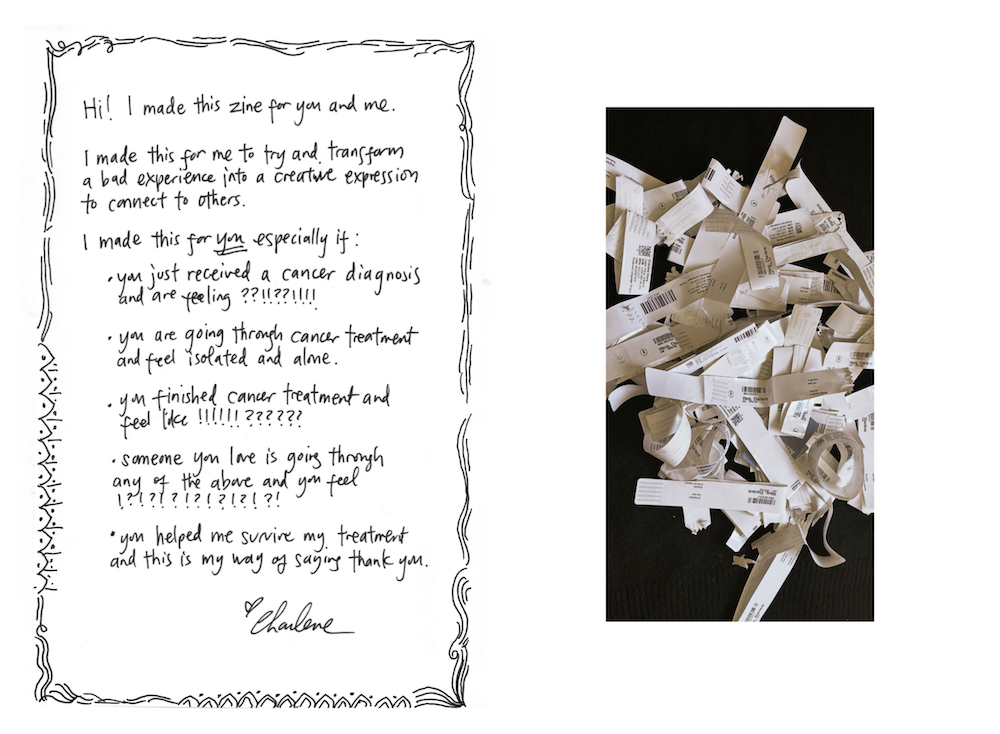 Hi! I made this zine for you and me.
I made this for me to try and transform
a bad experience into a creative expression
to connect to others.
I made this for you especially if:
• you just received a cancer diagnosis
and are feeling ??!!??!!!!
• you are going through cancer treatment
and feel isolated and alone.
• you finished cancer treatment and
feel like !!!!!!??????
• someone you love is going through
any of the above and you feel
!?!?!?!?!?!?!?!
• you helped me survive my treatment
and this is my way of saying thank you.
Charlene